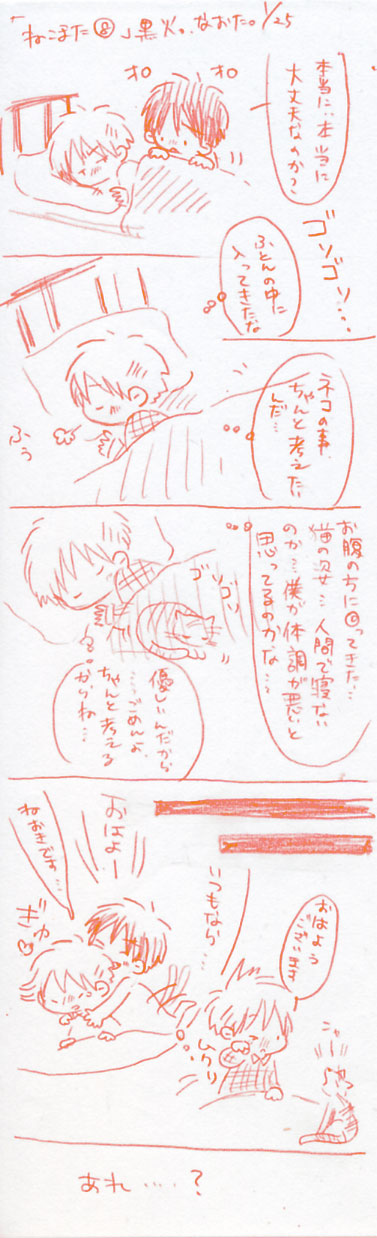 「ねこほた⑧」黒火。なおた。1/25
本当に…本当に
大丈夫なのか?
オロ
オロ
ゴソゴソ…
ふとんの中に
入ってきたな
ネコの事、
ちゃんと考えたい
んだ…
ふぅ
お腹のちに
ってきた…
猫の姿…人間で寝ない
のか…僕が体調が悪いと
思ってるのかな…
ゴソゴソ
優しいんだから
……ごめんよ
ちゃんと考える
からね…
おはよう
ございます
ニャー
ムクリ
いつもなら…
おはよー
ねおきですか…
ギュ
あれ…?